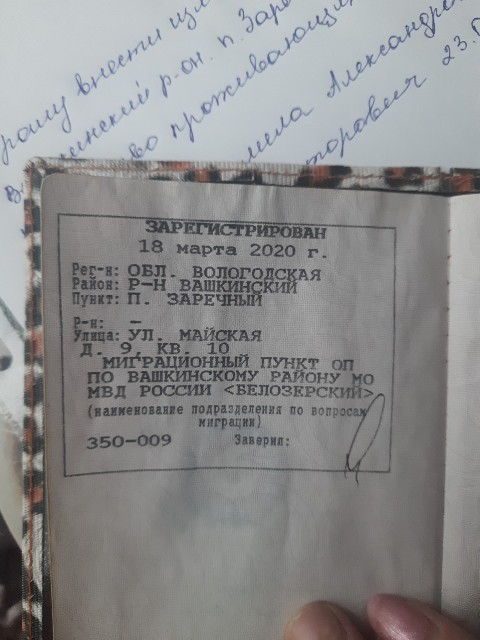 прошу внести
р-он. п. Заре
проживающи
Александро
23.0
ЗАРЕГИСТРИРОВАН
18 марта 2020 г.
Рег-н: ОБЛ. ВОЛОГОДСКАЯ
Район: Р-Н ВАШКИНСКИЙ
Пункт: П. ЗАРЕЧНЫЙ
Р-н: –
Улица: УЛ. МАЙСКАЯ
Д. 9, КВ. 10
МИГРАЦИОННЫЙ ПУНКТ ОП
ПО ВАШКИНСКОМУ РАЙОНУ МО
МВД РОССИИ <БЕЛОЗЕРСКИЙ>
(наименование подразделения по вопросам
миграции)
350-009 Заверил: